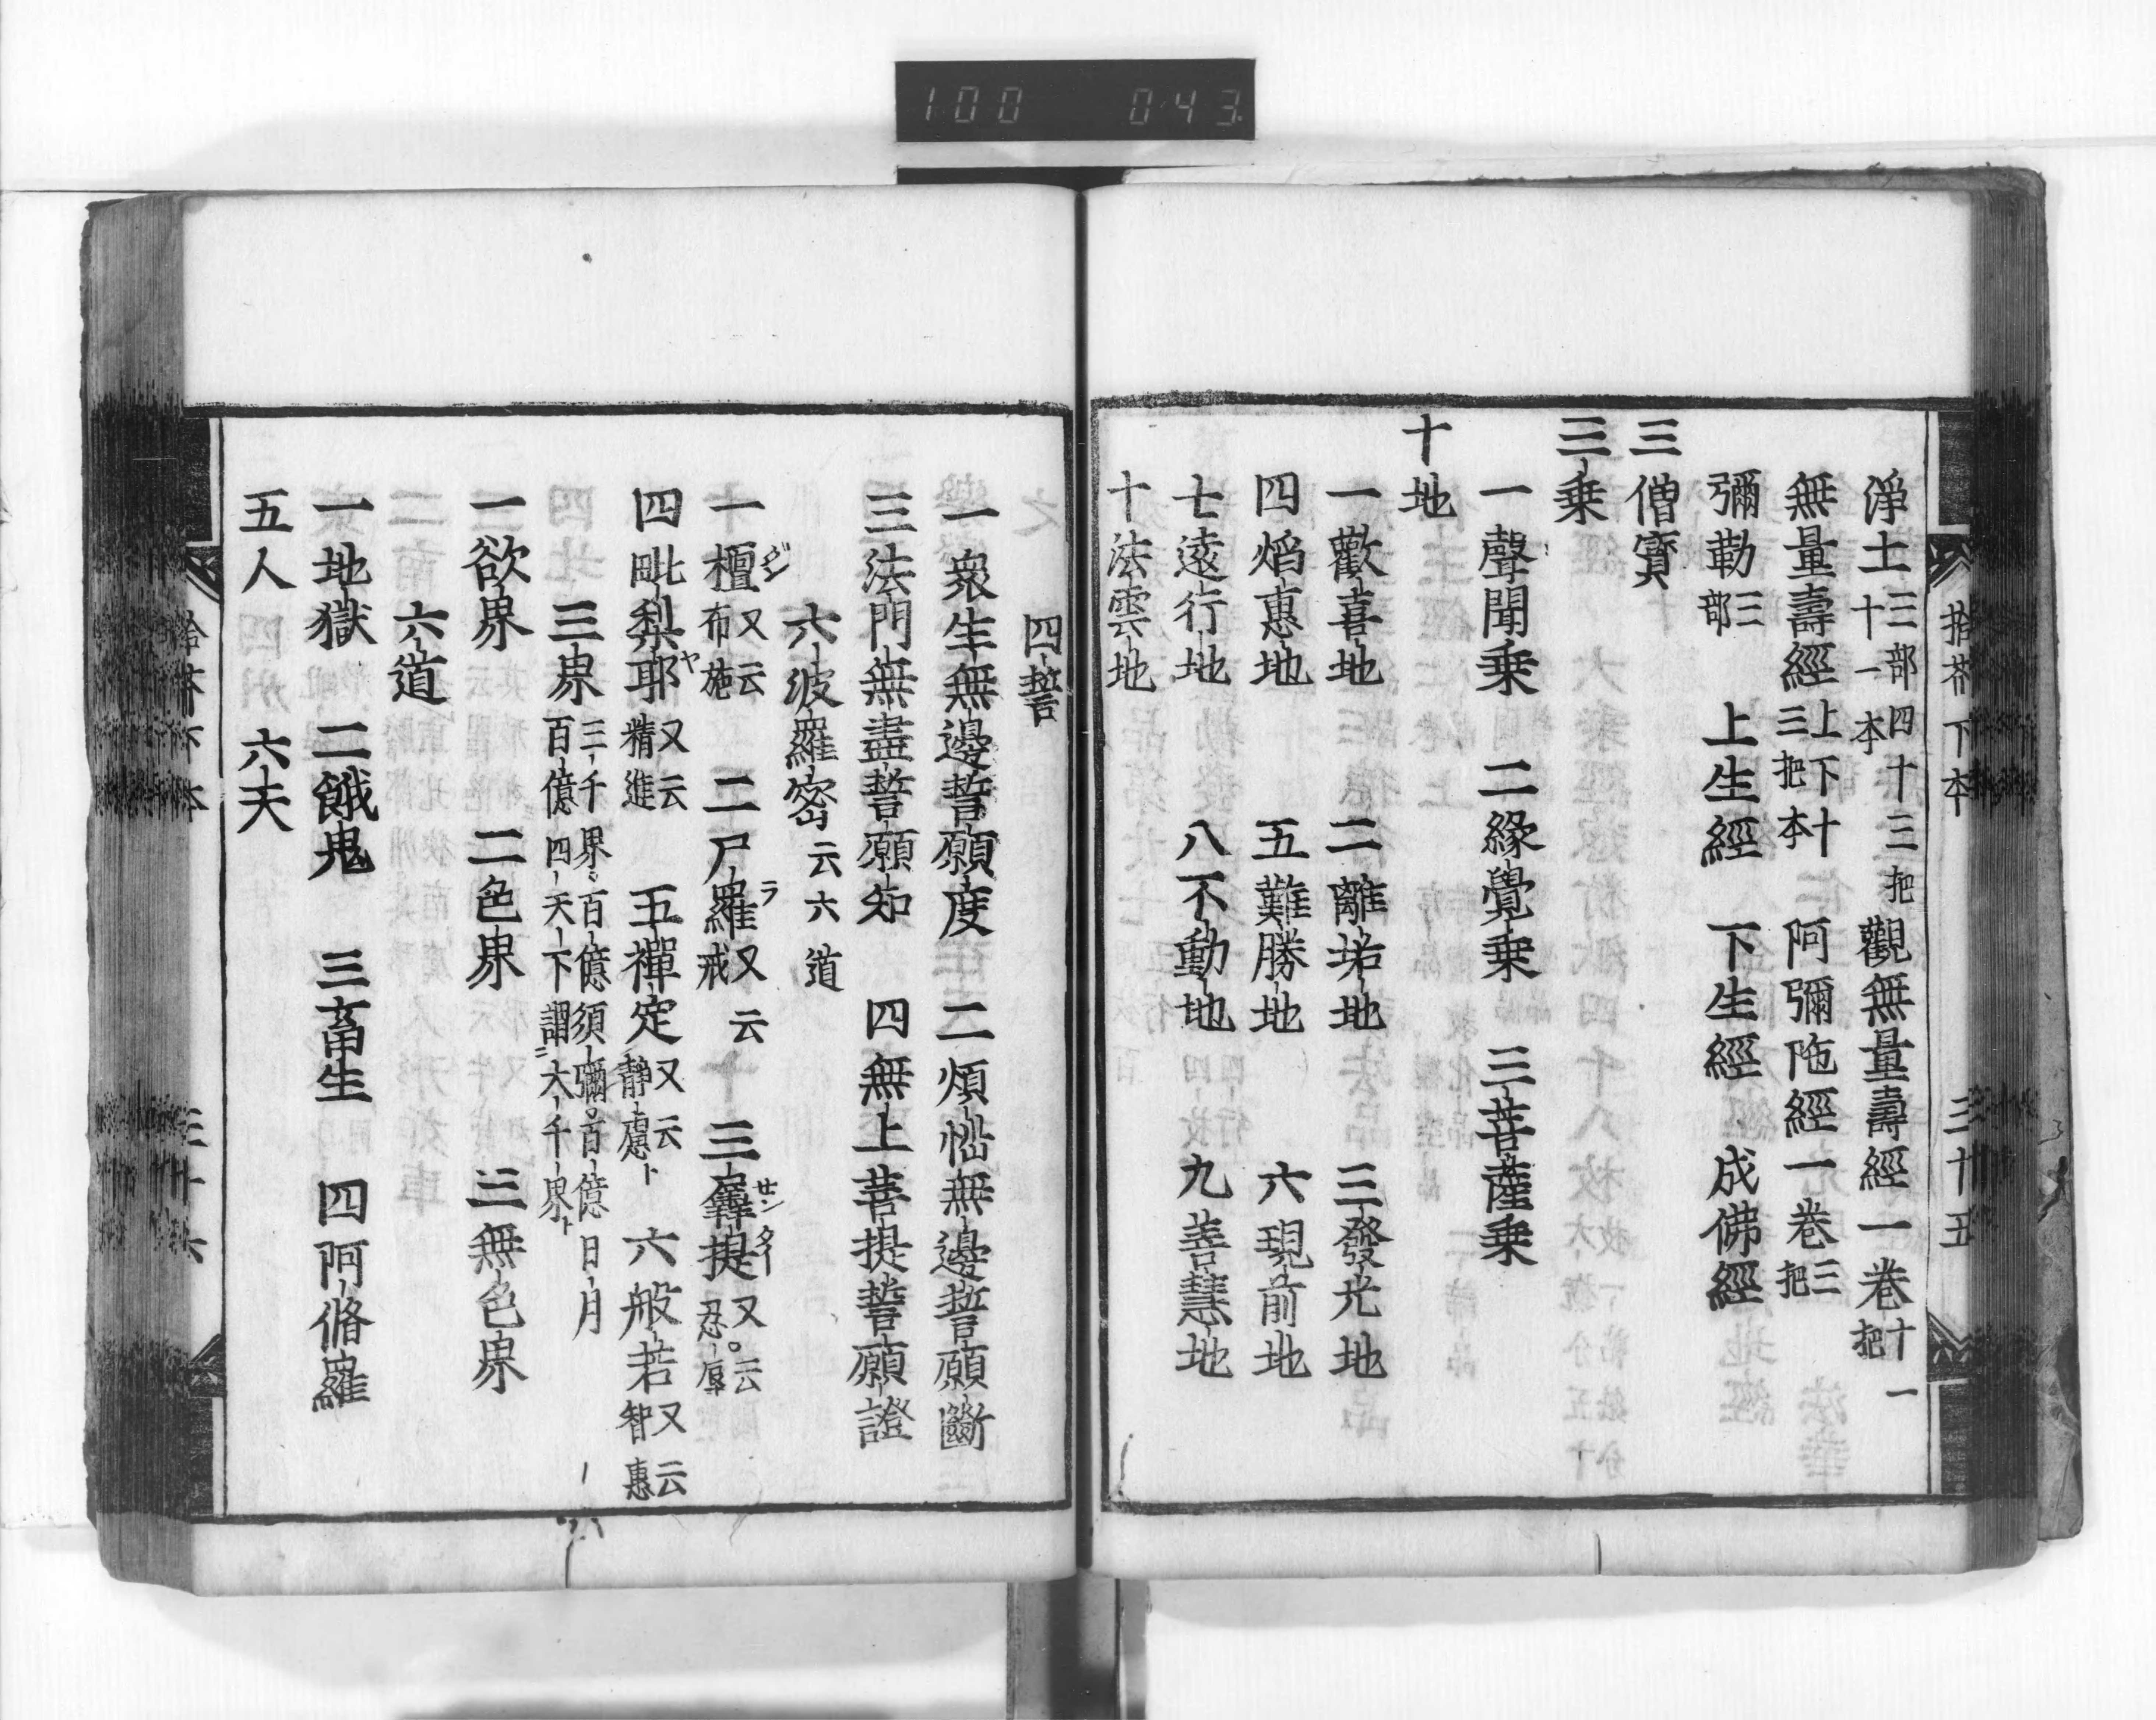 100 043
拾芥下本 三十五
淨土三部四十三把十一本 觀無量壽經一巻十一把
無量壽經上下十三把本 阿彌陁經一巻三把
彌勒三部 上生經 下生經 成佛經
三僧寳
三乗
一聲聞乗 二緣覺乗 三菩薩乗
十地
一歡喜地 二離垢地 三發光地
四焰惠地 五難勝地 六現前地
七遠行地 八不動地 九善慧地
十法雲地
四誓
一衆生無邊誓願度 二煩惱無邊誓願斷
三法門無盡誓願知 四無上菩提誓願證
六波羅密云六道
一檀又云布施 二尸羅又云戒 三羼提又云忍辱
四毗梨耶又云精進 五禪定又云靜慮ト 六般若又云智惠
三界三千界百億須彌百億日月百億四天下謂大千界ト
一欲界 二色界 三無色界
六道
一地獄 二餓鬼 三畜生 四阿脩羅
五人 六天